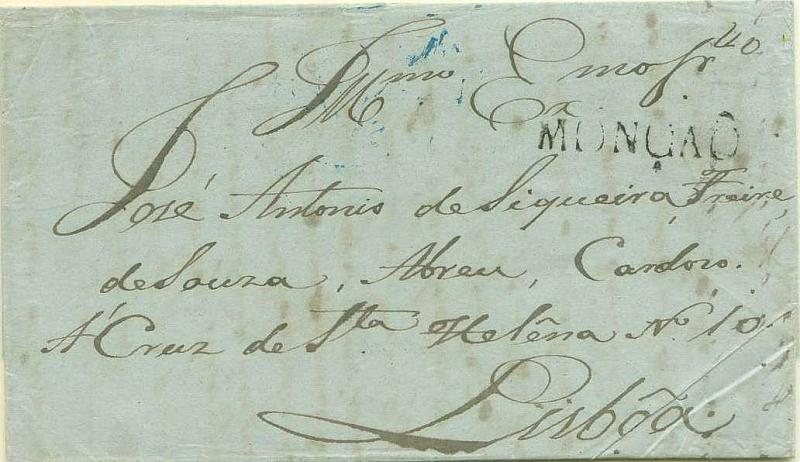 Illmo Exmo Snr
MONÇAÕ
José Antonio de Siqueira Freire
de Souza, Abreu, Cardozo.
A' Cruz de Sta Helêna No 10.
Lisbôa.